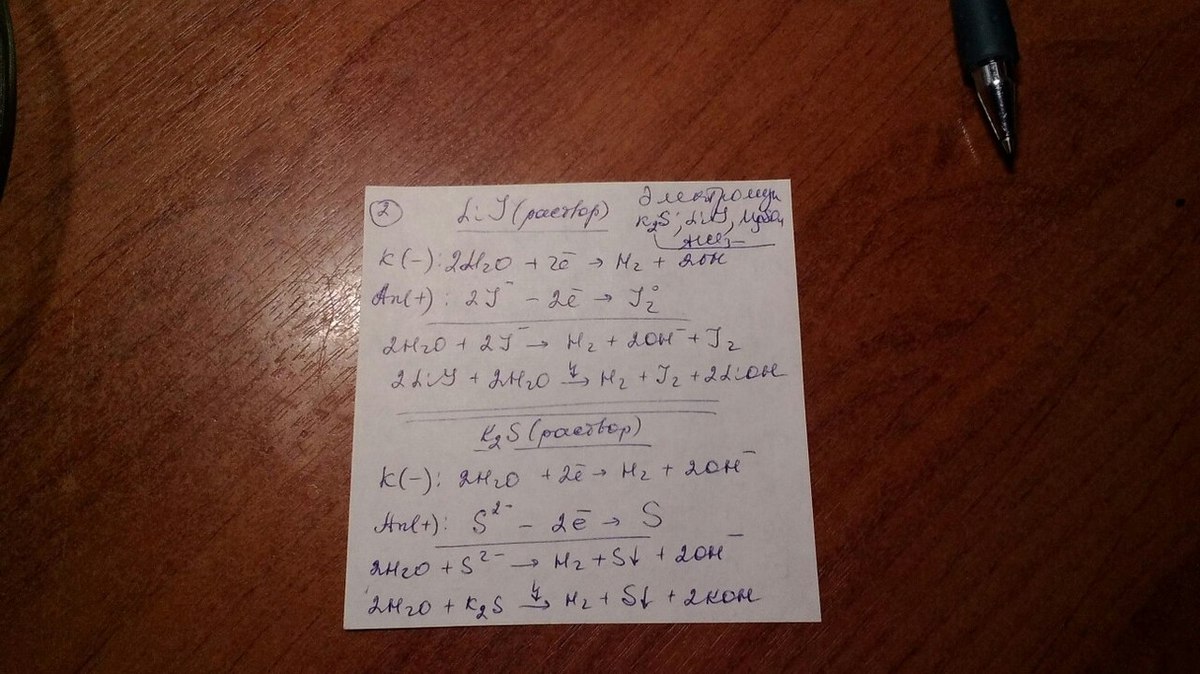 2
LiJ (раствор)
K₂S; LiJ,
K(-): 2H₂O + 2ē → H₂ + 2OH
An(+): 2J⁻ - 2ē → J₂⁰
2H₂O + 2J⁻ → H₂ + 2OH⁻ + J₂
2LiJ + 2H₂O → H₂ + J₂ + 2LiOH
K₂S (раствор)
K(-): 2H₂O + 2ē → H₂ + 2OH⁻
An(+): S²⁻ - 2ē → S
2H₂O + S²⁻ → H₂ + S↓ + 2OH⁻
2H₂O + K₂S → H₂ + S↓ + 2KOH